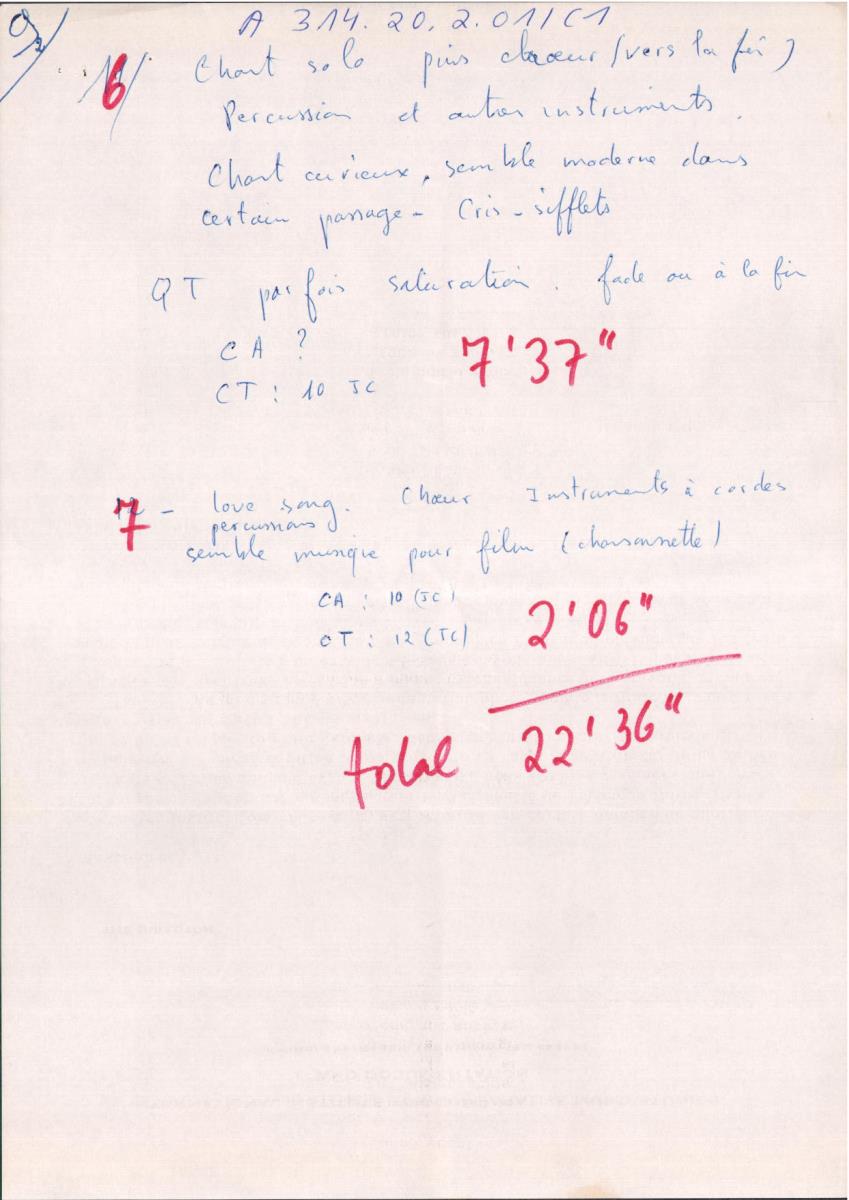 9/2
A 314.20.2.01/C1
6 Chant solo puis chœur (vers la fin)
Percussion et autres instruments.
Chant curieux, semble moderne dans
certain passage - Cris - sifflets
QT parfois saturation. fade ou à la fin
CA ?
7'37"
CT : 10 JC
7 - love song. Chœur Instruments à cordes
percussions
semble musique pour film (chansonnette)
CA : 10 (JC)
2'06"
CT : 12 (JC)
total 22'36"